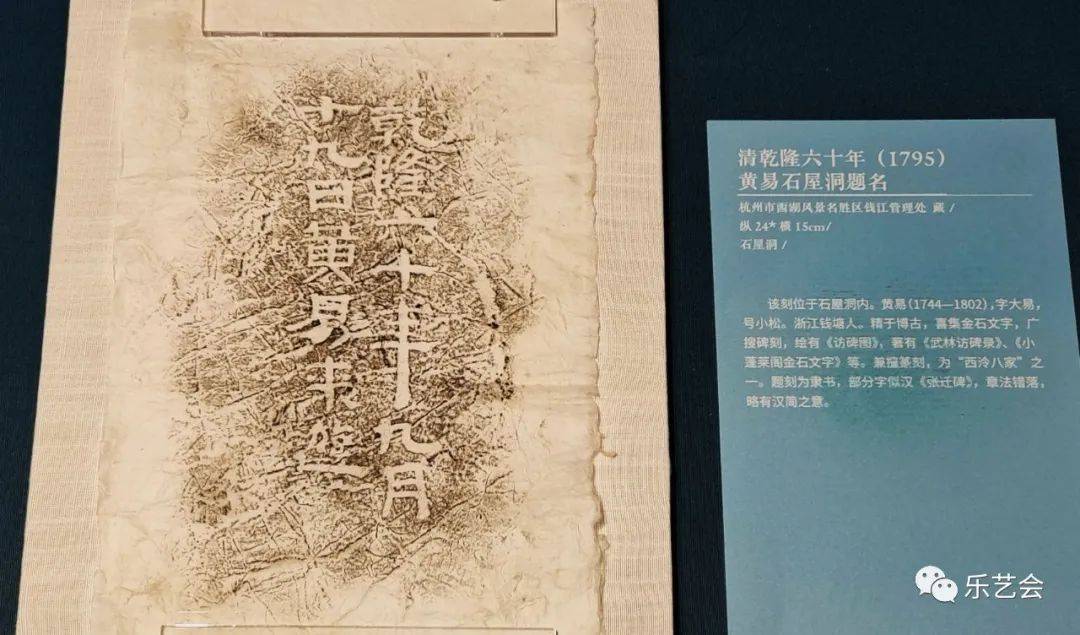 乾隆六十年九月
十九日黄易来遊
清乾隆六十年（1795）
黄易石屋洞题名
杭州市西湖风景名胜区钱江管理处 藏 /
纵 24* 横 15cm/
石屋洞 /
该刻位于石屋洞内。黄易（1744—1802），字大易，
号小松。浙江钱塘人。精于博古，喜集金石文字，广
搜碑刻，绘有《访碑图》，著有《武林访碑录》、《小
蓬莱阁金石文字》等。兼擅篆刻，为“西泠八家”之
一。题刻为隶书，部分字似汉《张迁碑》，章法错落，
略有汉简之意。
乐艺会